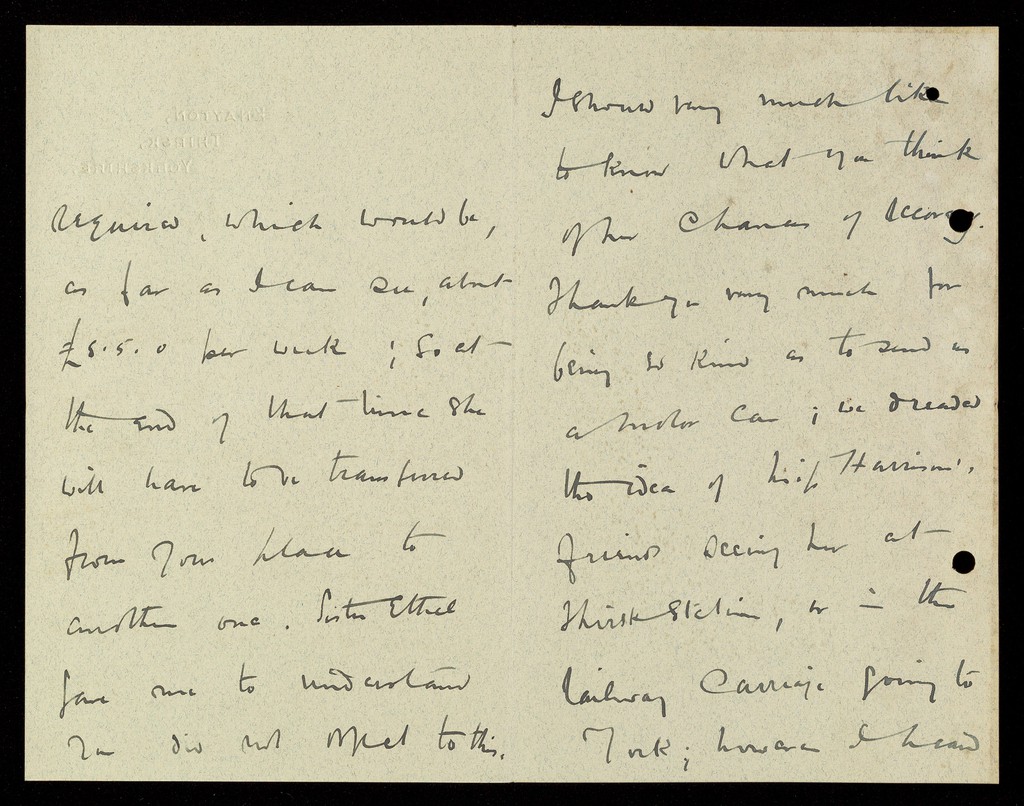 required, which would be,
as far as I can see, about
£5.5.0 per week; so at
the end of that time she
will have to be transferred
from your place to
another one. Sister Ethel
gave me to understand
you did not object to this.
I should very much like
to know what you think
of her chances of recovery.
Thank you very much for
being so kind as to send us
a motor car; we dreaded
the idea of Miss Harrison's
friends seeing her at
Thirsk Station, or in the
railway carriage going to
York; however I heard